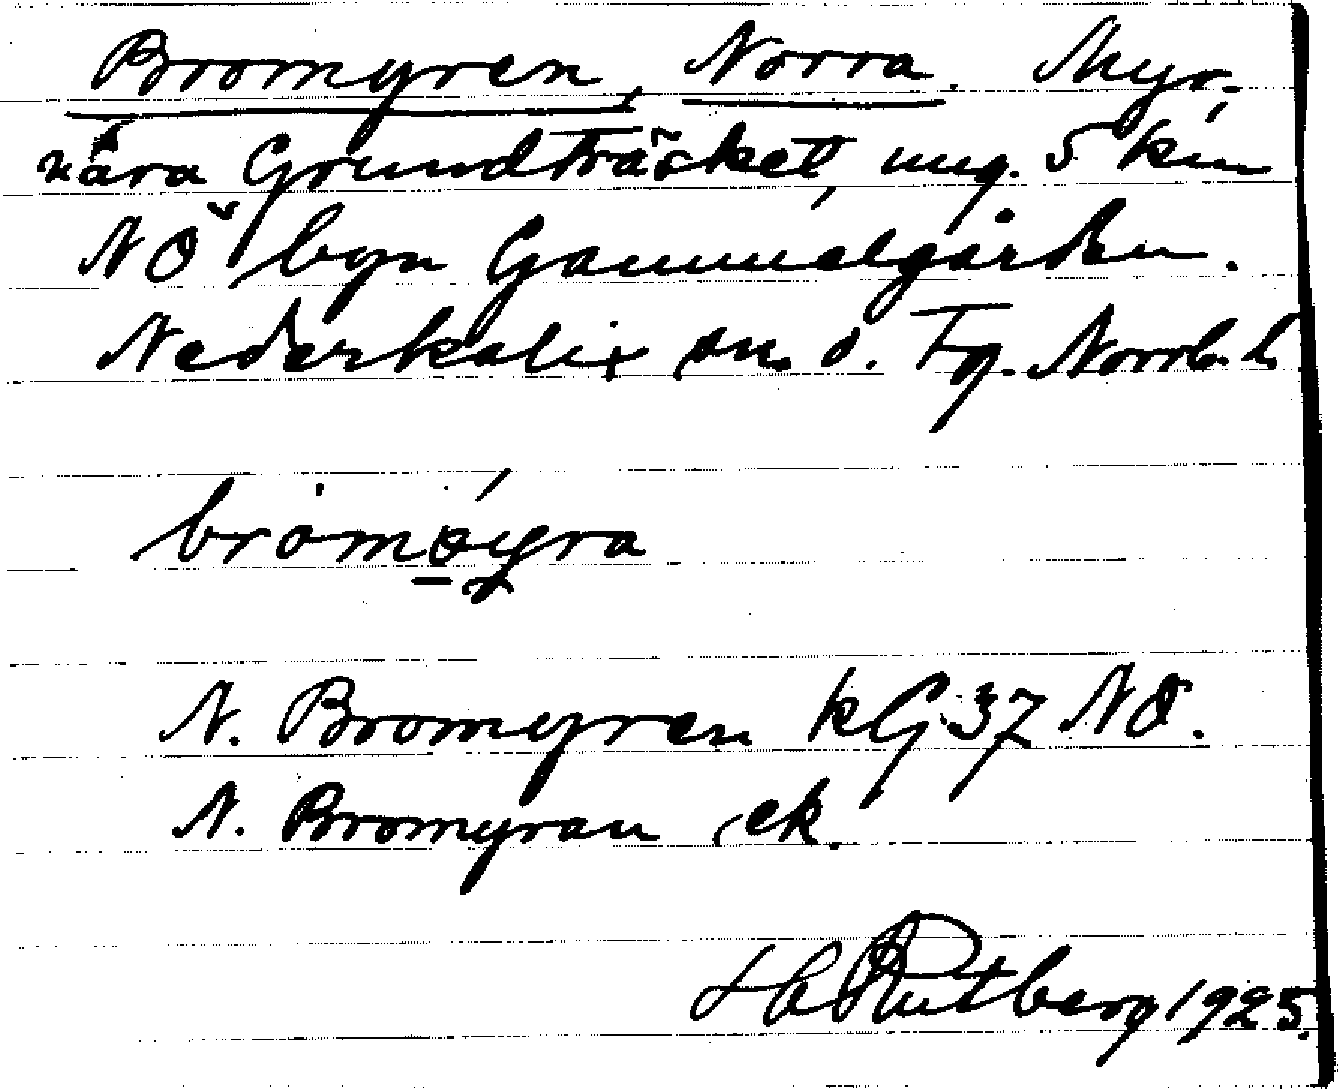 Bromyren, Norra. Myr
nära Grundträsket, ung. 5 km
NÖ byn Gammelgården.
Nederkalix sn o. Tg. Norrb. l.
bromøyra
N. Bromyren kG 37 NÖ.
N. Bromyran ek.
H Rutberg 1925.